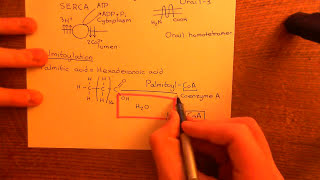 SERCA
ATP
ADP + Pi
3H+
Cytoplasm
2Ca2+
Lumen
H2N
COOH
Orai1-3
Orai1 homotetramer
Palmitoylation
Palmitic acid = Hexadecanoic acid
Palmitoyl - CoA
Coenzyme A
OH
H2O
CoA